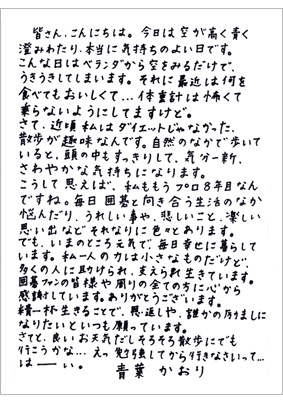 皆さん、こんにちは。今日は空が高く青く
澄みわたり、本当に気持ちのよい日です。
こんな日はベランダから空をみるだけで、
うきうきしてしまいます。それに最近は何を
食べてもおいしくて…体重計は怖くて
乗らないようにしてますけど。
さて、近頃私はダイエットじゃなかった、
散歩が趣味なんです。自然のなかで歩いて
いると、頭の中もすっきりして、気分一新、
さわやかな気持ちになります。
こうして思えば、私ももうプロ8年目なん
ですね。毎日囲碁と向き合う生活のなか
悩んだり、うれしい事や、悲しいこと、楽しい
思い出などそれなりに色々とあります。
でも、いまのところ元気で、毎日幸せに暮らして
います。私一人の力は小さなものだけど、
多くの人に助けられ、支えられ生きています。
囲碁ファンの皆様や周りの全ての方に心から
感謝しています。ありがとうございます。
精一杯生きることで、恩返しや、誰かの励ましに
なりたいといつも願っています。
さてと、良いお天気だしそろそろ散歩にでも
行こうかな…えっ勉強してから行きなさいって…
はーーい。
青葉かおり